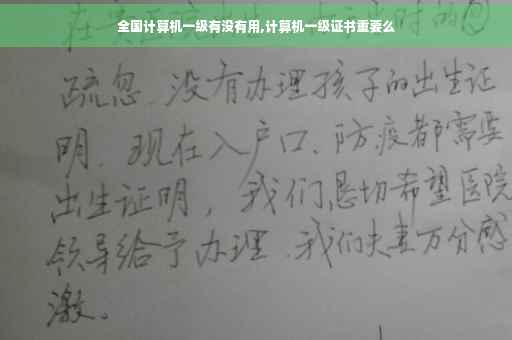 全国计算机一级有没有用,计算机一级证书重要么
疏忽、没有办理孩子的出生证
明、现在入户口、防疫都需要
出生证明，我们恳切希望医院
领导给予办理、我们夫妻万分感
激。